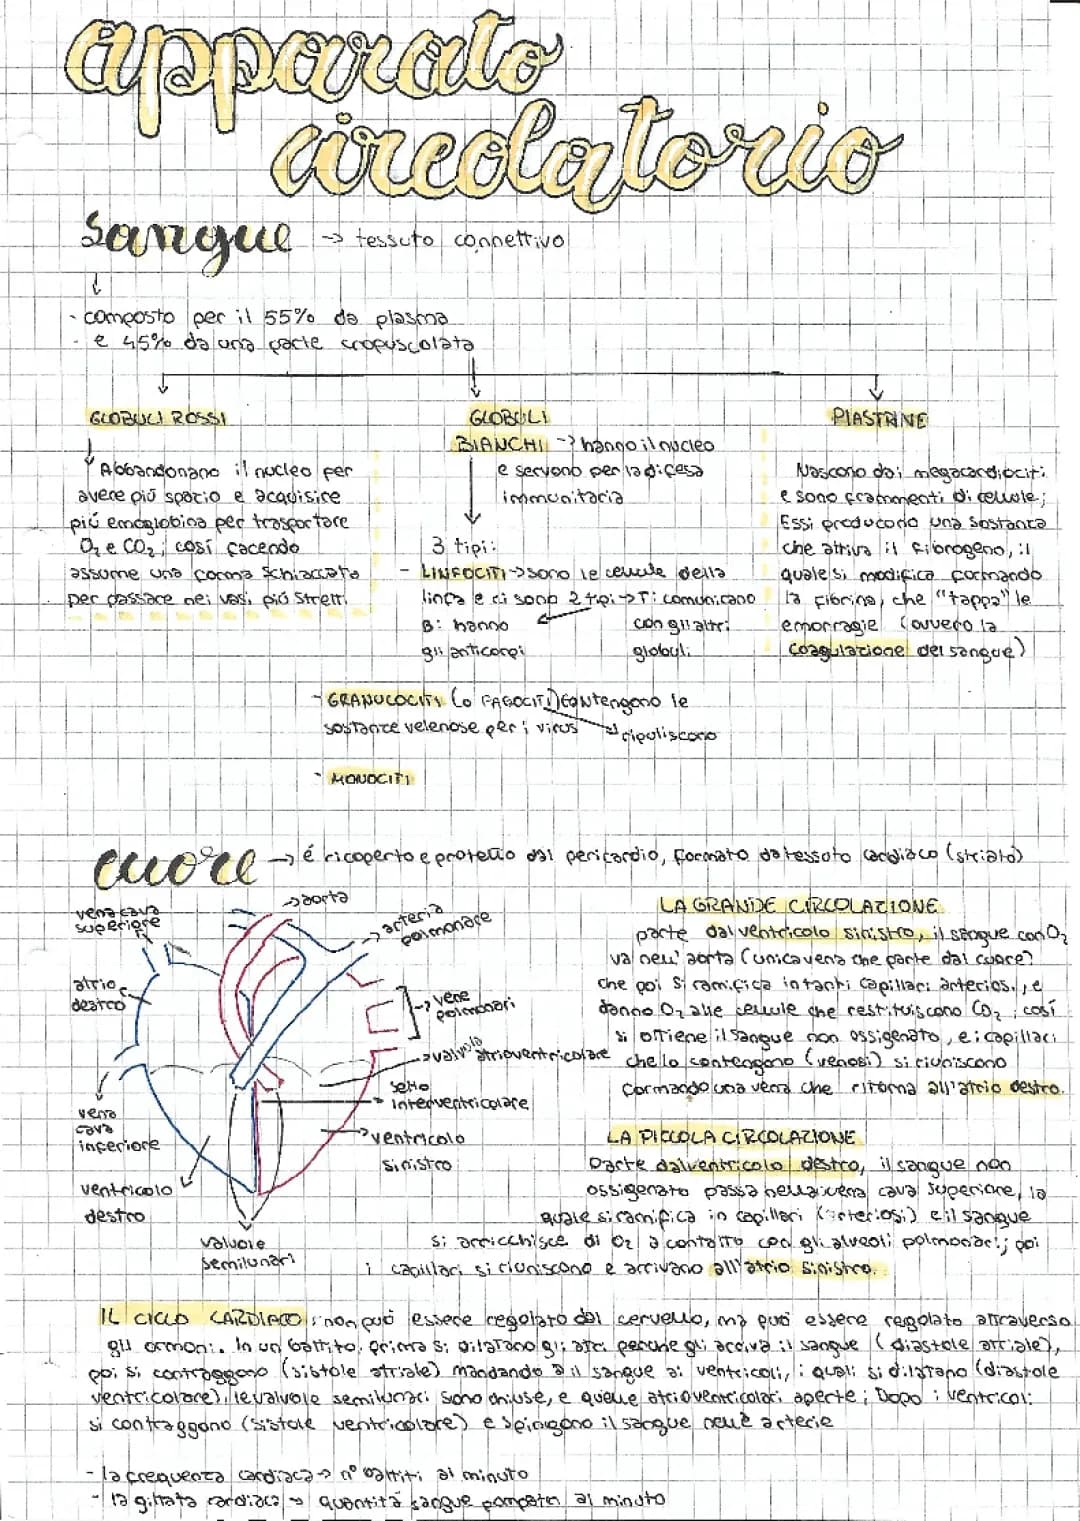 apparato
circolatorio
Sangue → tessuto connettivo
- composto per il 55% da plasma
- e 45% da una parte cropuscolata
GLOBULI ROSSI
Abbandonano il nucleo per
avere più spazio e acquisire
più emoglobina per trasportare
O2 e CO2; così facendo
assume una forma schiacciata
per passare nei vasi più stretti
GLOBULI
BIANCHI → hanno il nucleo
e servono per la difesa
immunitaria
3 tipi:
- LINFOCITI → sono le cellule della
linfa e ci sono 2 tipi → T: comunicano
con gli altri
globuli
B: hanno
gli anticorpi
- GRANULOCITI (o FAGOCITI) contengono le
sostanze velenose per i virus
ripuliscono
- MONOCITI
PIASTRINE
Nascono dai megacardiociti
e sono frammenti di cellule;
Essi producono una sostanza
che attiva il fibrogeno, il
quale si modifica formando
la fibrina, che "tappa" le
emorragie (ovvero la
coagulazione del sangue)
cuore → é ricoperto e protetto dal pericardio, formato da tessuto cardiaco (striato)
vena cava
superiore
→ aorta
→ arteria
polmonare
atrio
destro
→ vene
polmonari
→ valvola atrioventricolare
setto
interventricolare
vena
cava
inferiore
→ ventricolo
sinistro
ventricolo
destro
valvole
semilunari
LA GRANDE CIRCOLAZIONE
parte dal ventricolo sinistro, il sangue con O2
va nell'aorta (unica vena che parte dal cuore)
che poi si ramifica in tanti capillari arteriosi, e
danno O2 alle cellule che restituiscono CO2, così
si ottiene il sangue non ossigenato, e i capillari
che lo contengono (venosi) si riuniscono
formando una vena che ritorna all'atrio destro.
LA PICCOLA CIRCOLAZIONE
Parte dal ventricolo destro, il sangue non
ossigenato passa nella vena cava superiore, la
quale si ramifica in capillari (arteriosi) e il sangue
si arricchisce di O2 a contatto con gli alveoli polmonari; poi
i capillari si riuniscono e arrivano all'atrio sinistro.
IL CICLO CARDIACO: non può essere regolato dal cervello, ma può essere regolato attraverso
gli ormoni. In un battito, prima si dilatano gli atri perche gli arriva il sangue (diastole atriale),
poi si contraggono (sistole atriale) mandando il sangue ai ventricoli, i quali si dilatano (diastole
ventricolare), le valvole semilunari sono chiuse, e quelle atrioventricolari aperte; Dopo i ventricoli
si contraggono (sistole ventricolare) e spingono il sangue nelle arterie
- la frequenza cardiaca → n° battiti al minuto
- la gittata cardiaca → quantità sangue pompata al minuto